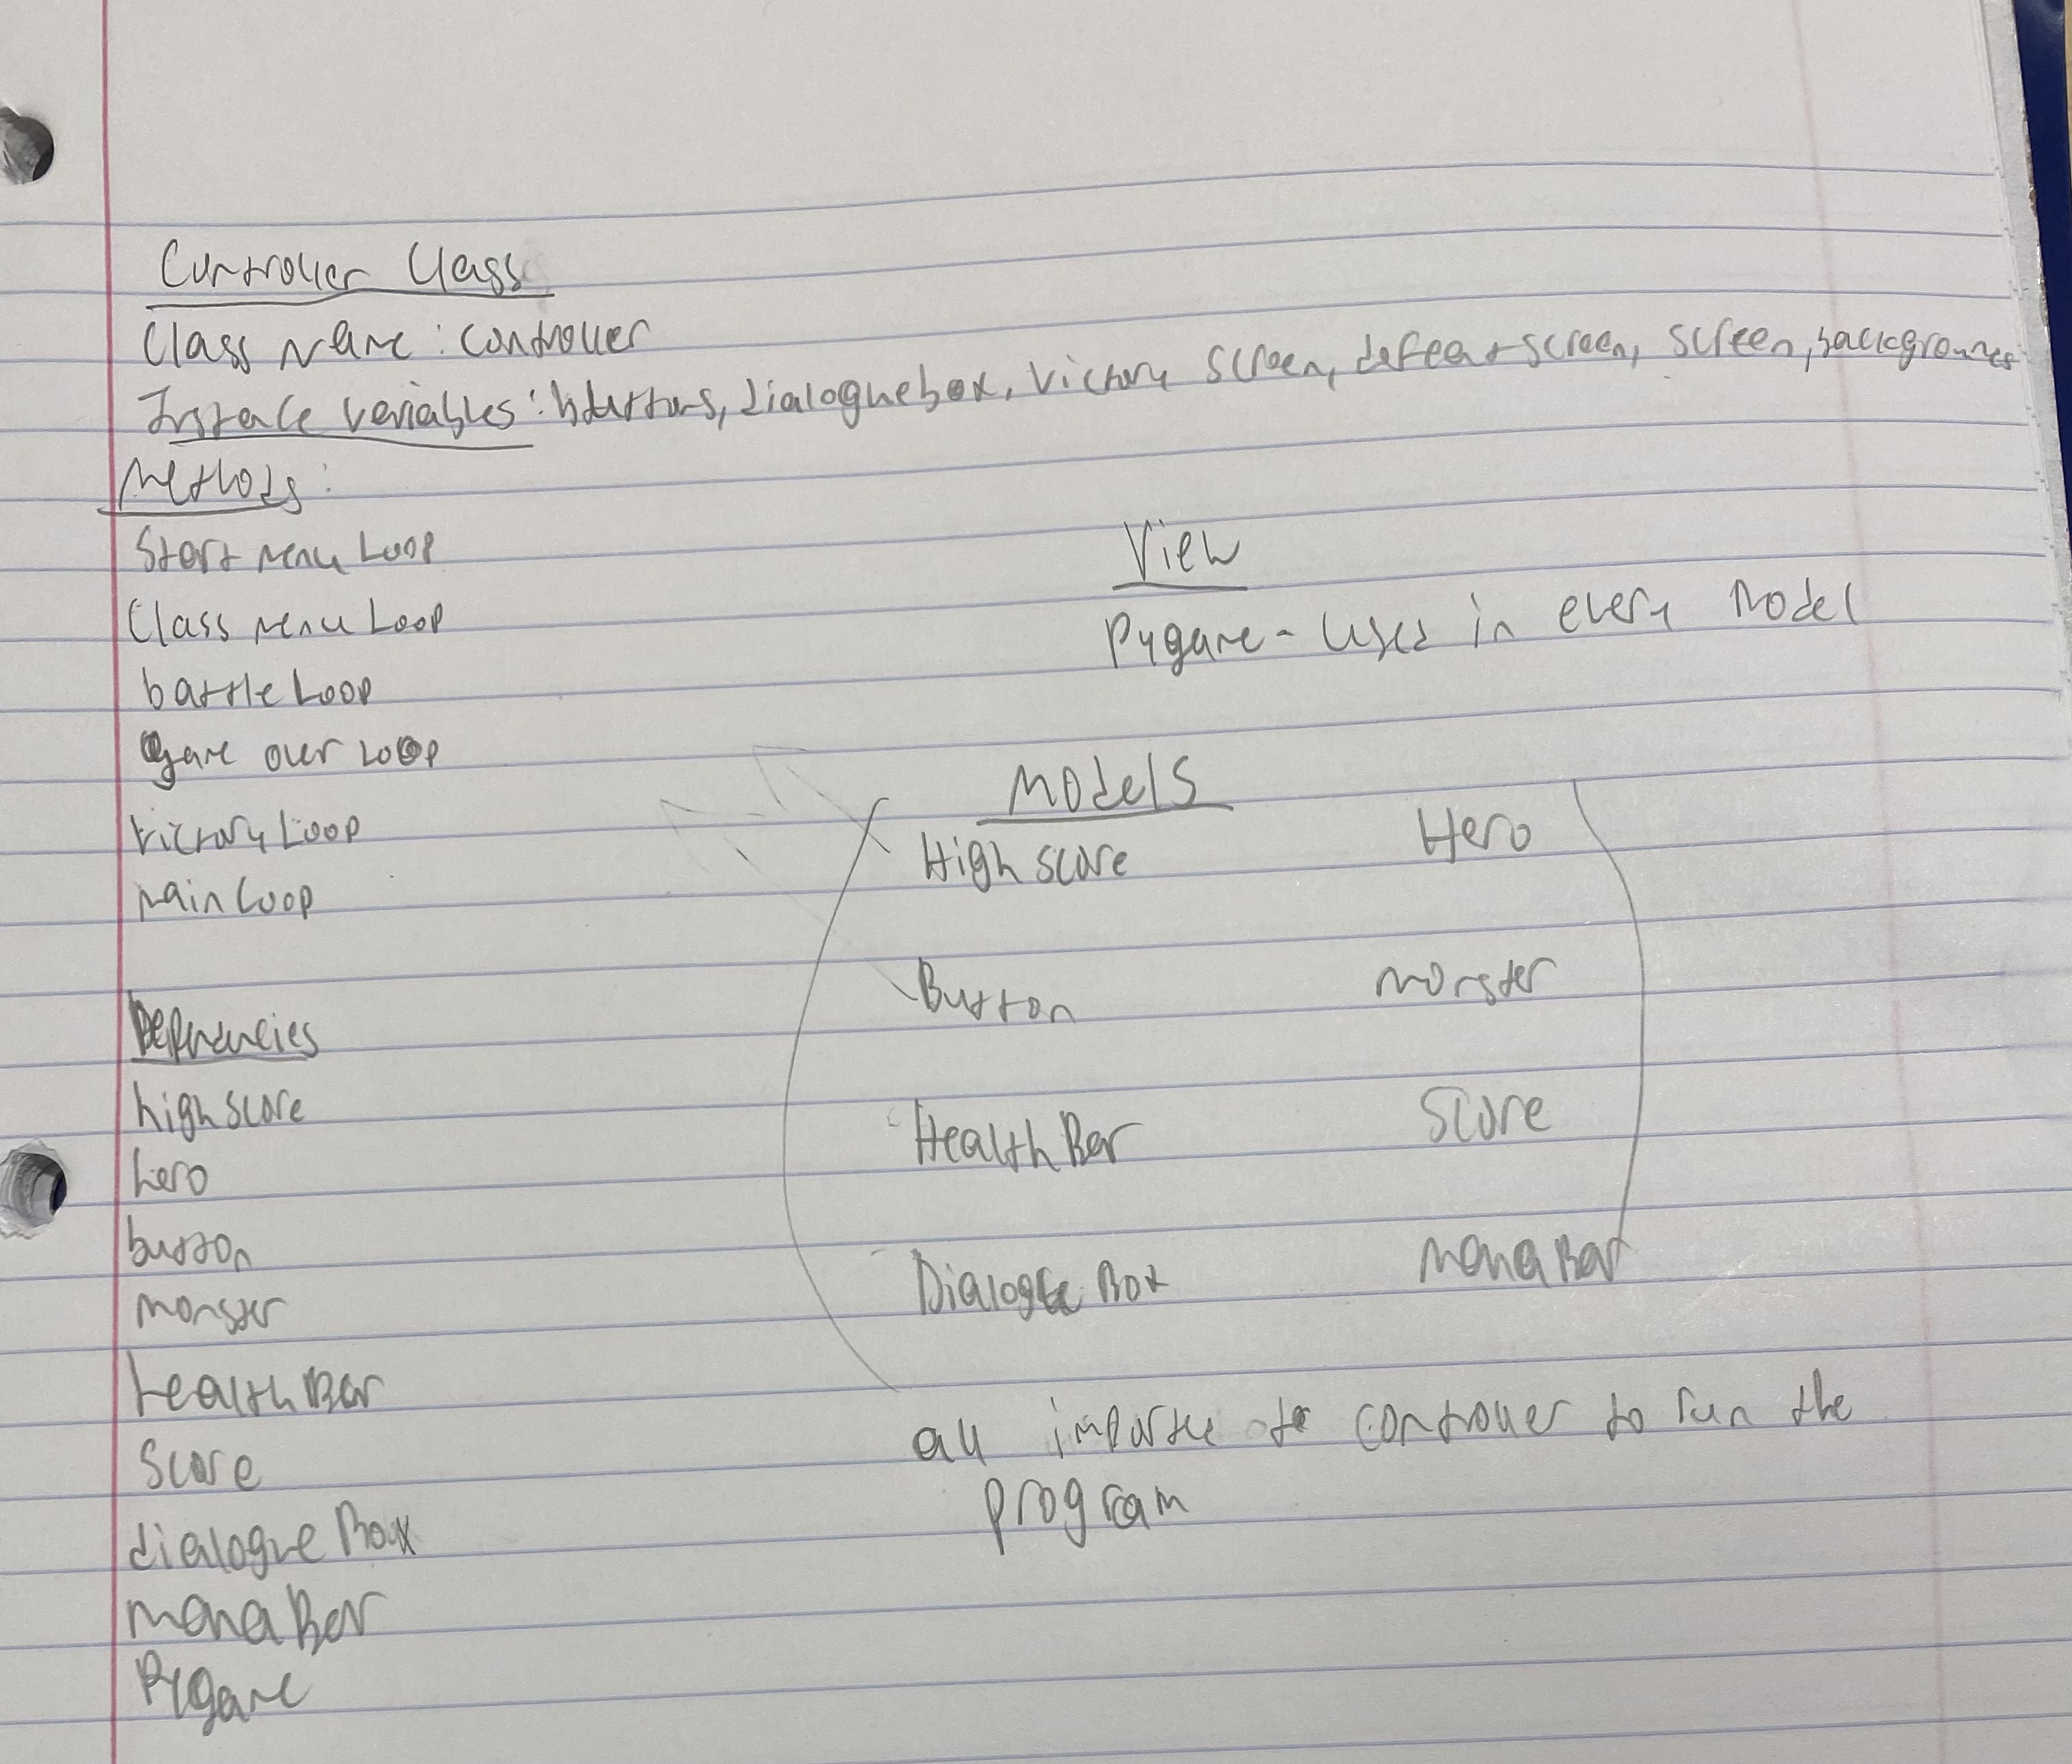 Controller Class
Class Name: Controller
Instace variables: buttons, dialoguebox, victory screen, defeat screen, screen, backgrounds
Methods:
Start menu Loop
Class menu Loop
battle Loop
game over loop
victory Loop
main loop
Depenancies
high score
hero
button
monster
health Bar
Score
dialogue Box
mana Bar
Pygame
View
Pygame - used in every model
Models
High score
Hero
Button
monster
Health Bar
Score
Dialogue Box
mana Bar
all importe to controller to run the
program